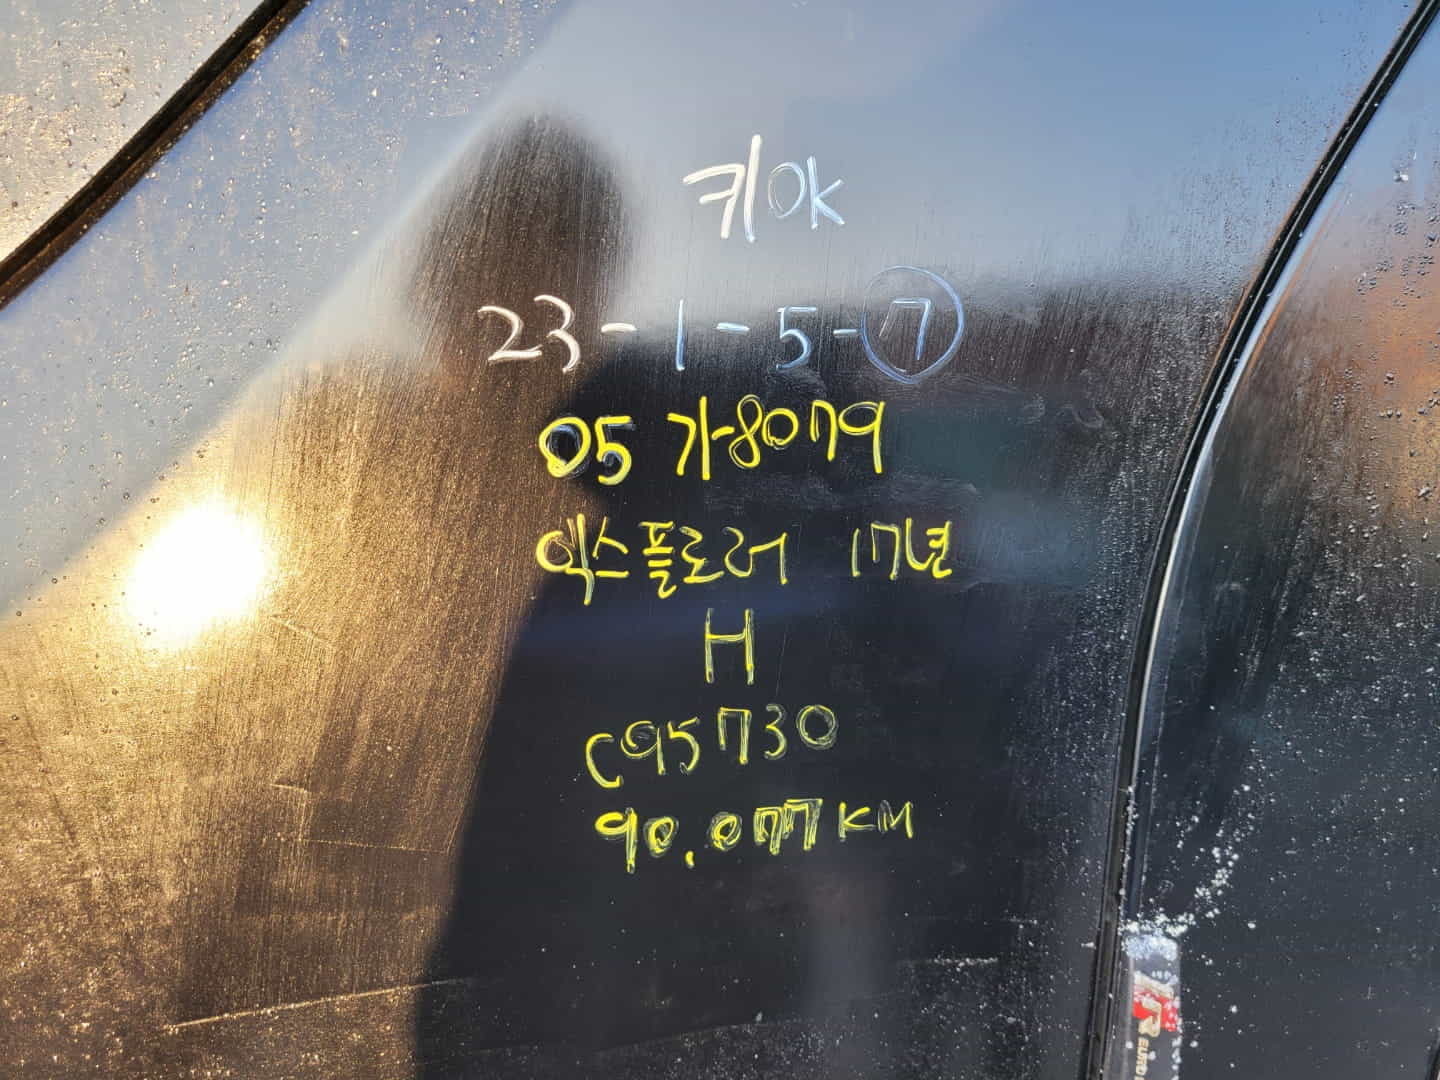 키OK
23-1-5-⑦
05 가-8079
엑스플로러 17년
H
C95730
90,077KM
R
EURO